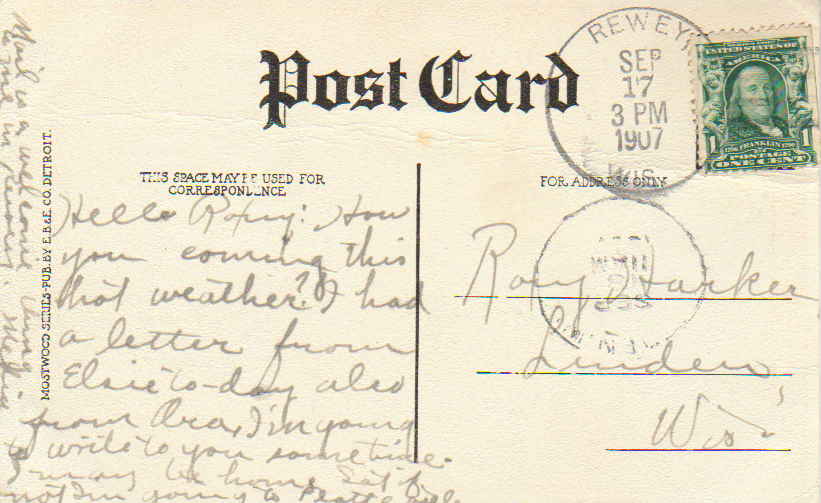 Post Card
REWEY
SEP
17
3 PM
1907
WIS.
UNITED STATES OF
AMERICA
1 1
FRANKLIN
POSTAGE
ONE CENT
THIS SPACE MAY BE USED FOR
CORRESPONDENCE
FOR ADDRESS ONLY
Hello Roxy: How
you coming this
hot weather? I had
a letter from
Elsie to-day also
from Ora, I'm going
to write to you sometime.
may be home Sat if
not I'm going to Platteville
Mail is a welcome thing
to me in
Roxy Harker
Linden
Wis
MOSTWOOD SERIES-PUB. BY E.B.& E. CO. DETROIT.